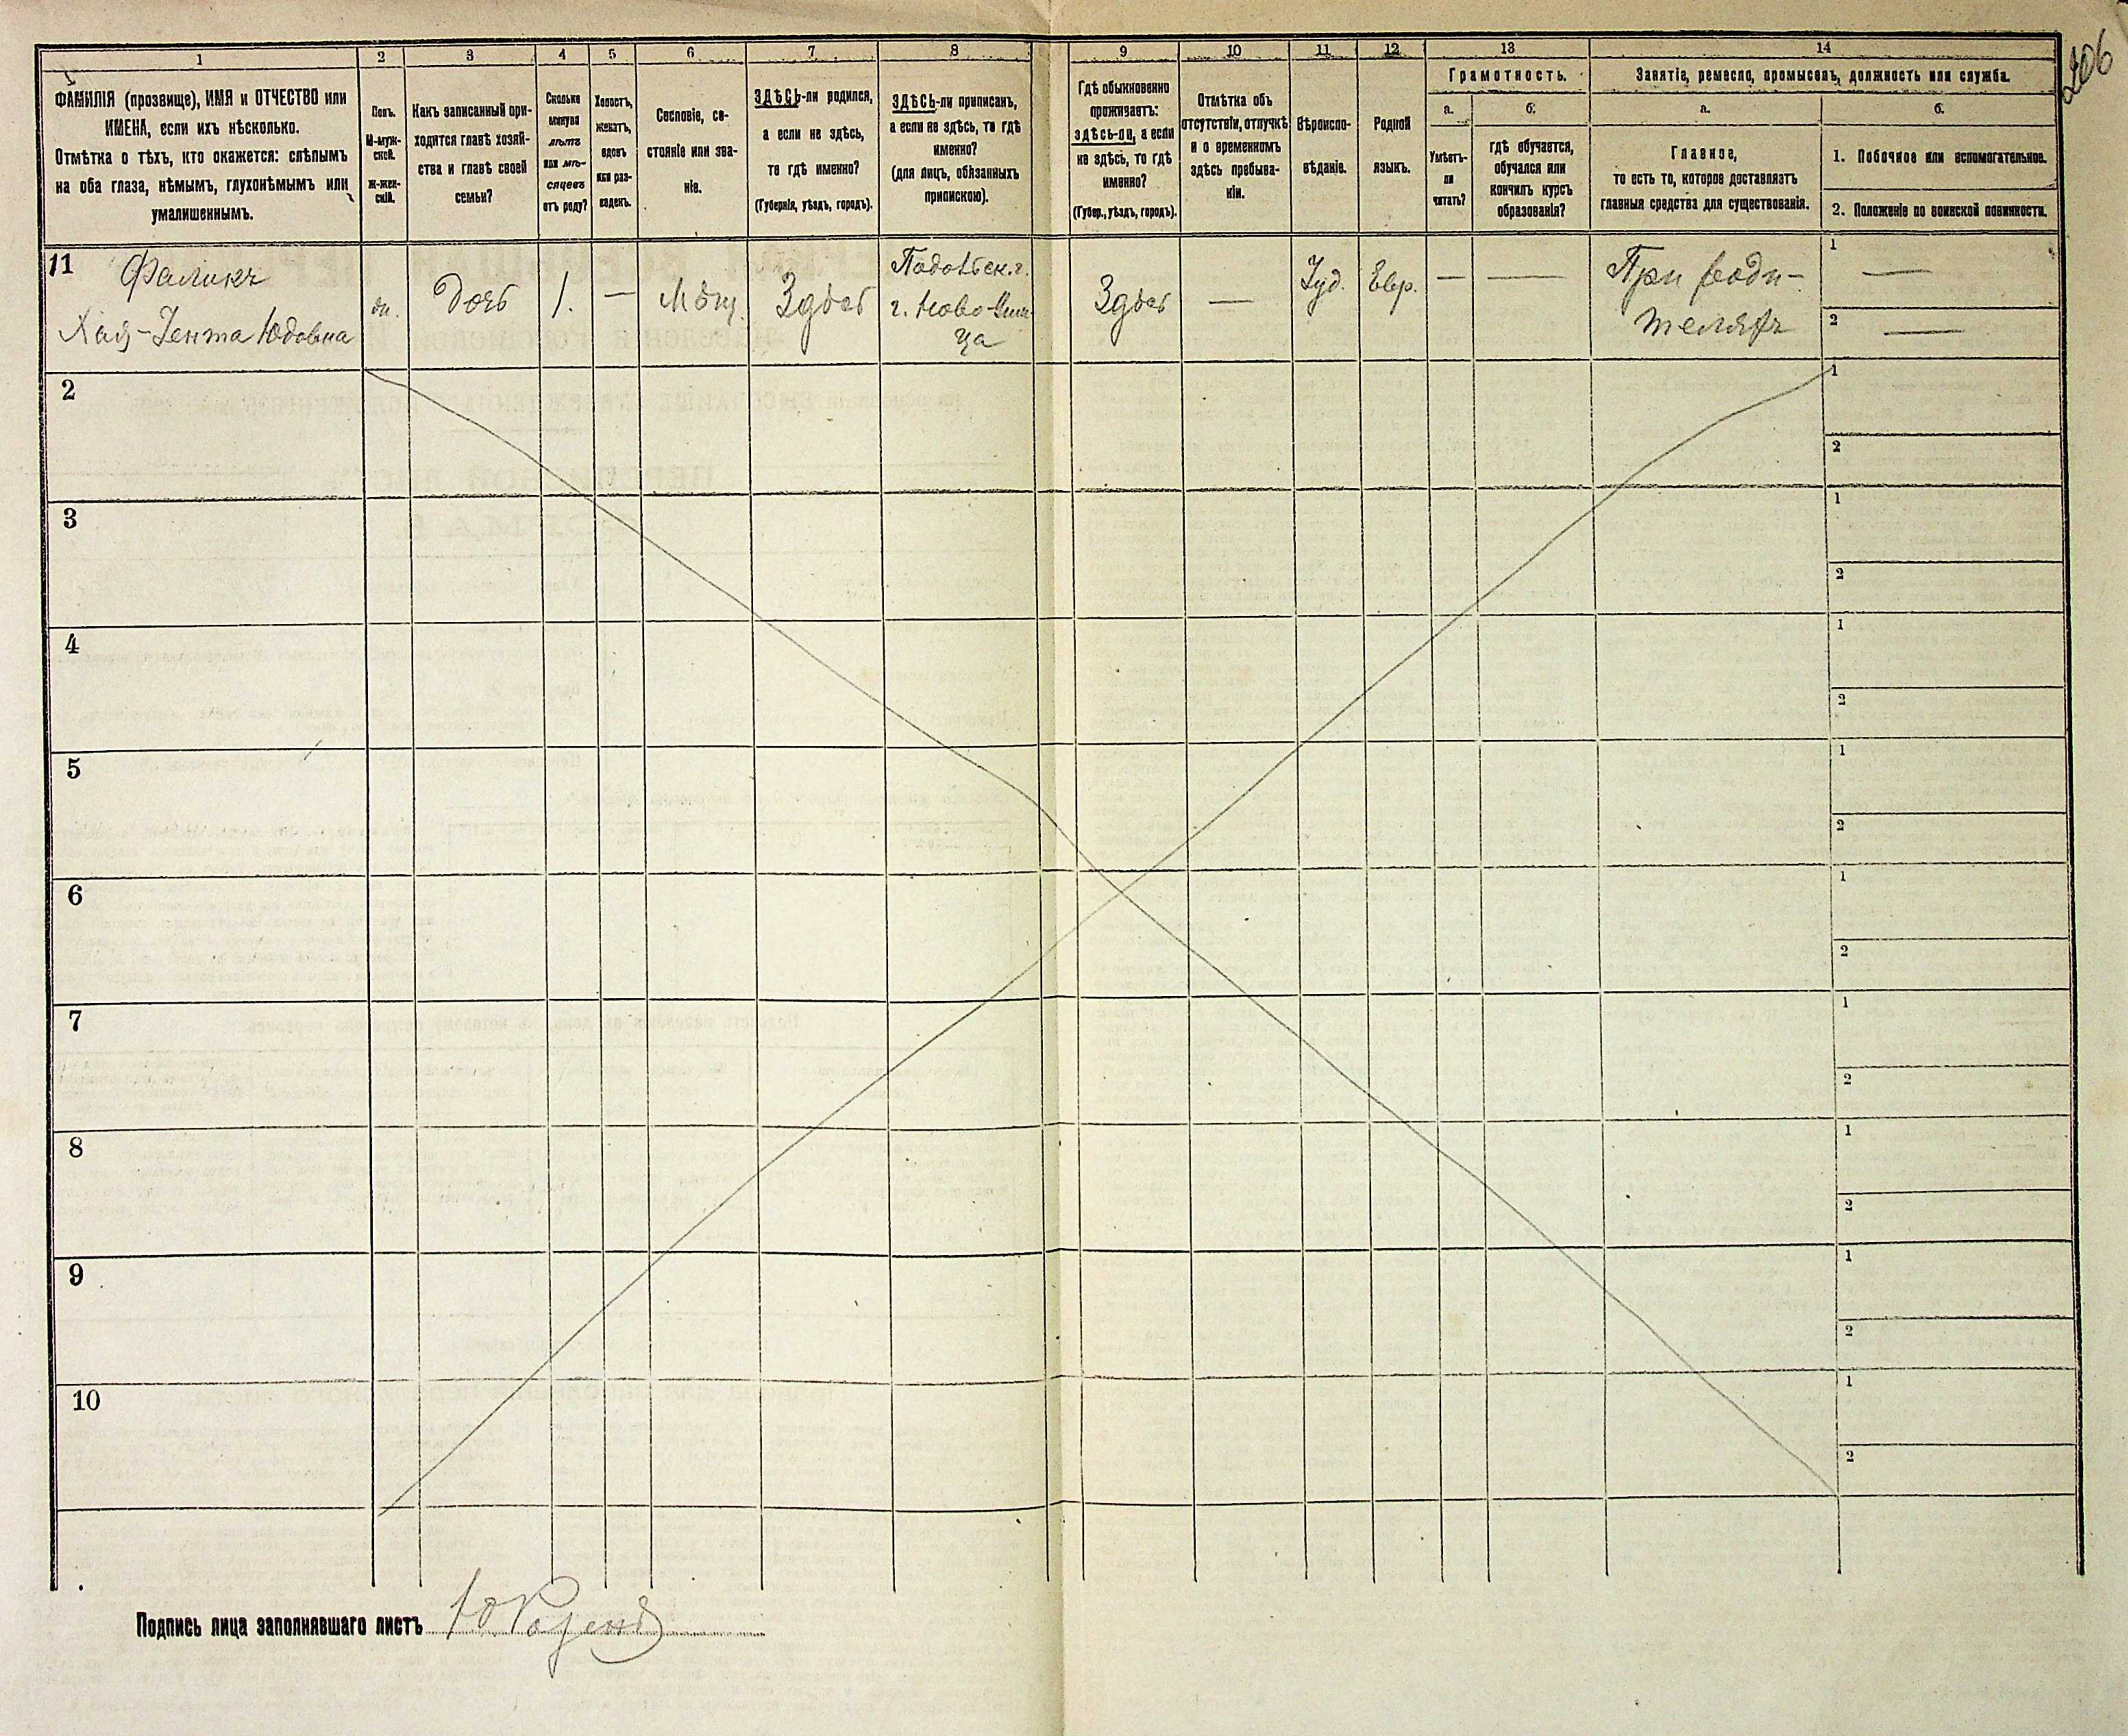 206
1
2
3
4
5
6
7
8
9
10
11
12
13
14
ФАМИЛІЯ (прозвище), ИМЯ и ОТЧЕСТВО или
ИМЕНА, если ихъ нѣсколько.
Отмѣтка о тѣхъ, кто окажется: слѣпымъ
на оба глаза, нѣмымъ, глухонѣмымъ или
умалишеннымъ.
Полъ.
М-муж-
ской.
Ж-жен-
скій.
Какъ записанный при-
ходится главѣ хозяй-
ства и главѣ своей
семьи?
Сколько
минуло
лѣтъ
или мѣ-
сяцевъ
отъ роду?
Холостъ,
женатъ,
вдовъ
или раз-
веденъ.
Сословіе, со-
стояніе или зва-
ніе.
ЗДѢСЬ-ли родился,
а если не здѣсь,
то гдѣ именно?
(Губернія, уѣздъ, городъ).
ЗДѢСЬ-ли приписанъ,
а если не здѣсь, то гдѣ
именно?
(для лицъ, обязанныхъ
припискою).
Гдѣ обыкновенно
проживаетъ:
здѣсь-ли, а если
не здѣсь, то гдѣ
именно?
(Губер., уѣздъ, городъ).
Отмѣтка объ
отсутствіи, отлучкѣ
и о временномъ
здѣсь пребыва-
ніи.
Вѣроиспо-
вѣданіе.
Родной
языкъ.
Грамотность.
а.
Умѣетъ-
ли
читать?
б.
гдѣ обучается,
обучался или
кончилъ курсъ
образованія?
Занятіе, ремесло, промыселъ, должность или служба.
а.
Главное,
то есть то, которое доставляетъ
главныя средства для существованія.
б.
1. Побочное или вспомогательное.
2. Положеніе по воинской повинности.
11
Фаликъ
Хая-Іента Юдовна
жн.
Дочь
1.
—
Мѣщ.
Здѣсь
Подольск. г.
г. Ново-Уши-
ца
Здѣсь
—
Іуд.
Евр.
—
—
При роди-
теляхъ
1
—
2
—
2
1
2
3
1
2
4
1
2
5
1
2
6
1
2
7
1
2
8
1
2
9
1
2
10
1
2
Подпись лица заполнявшаго листъ